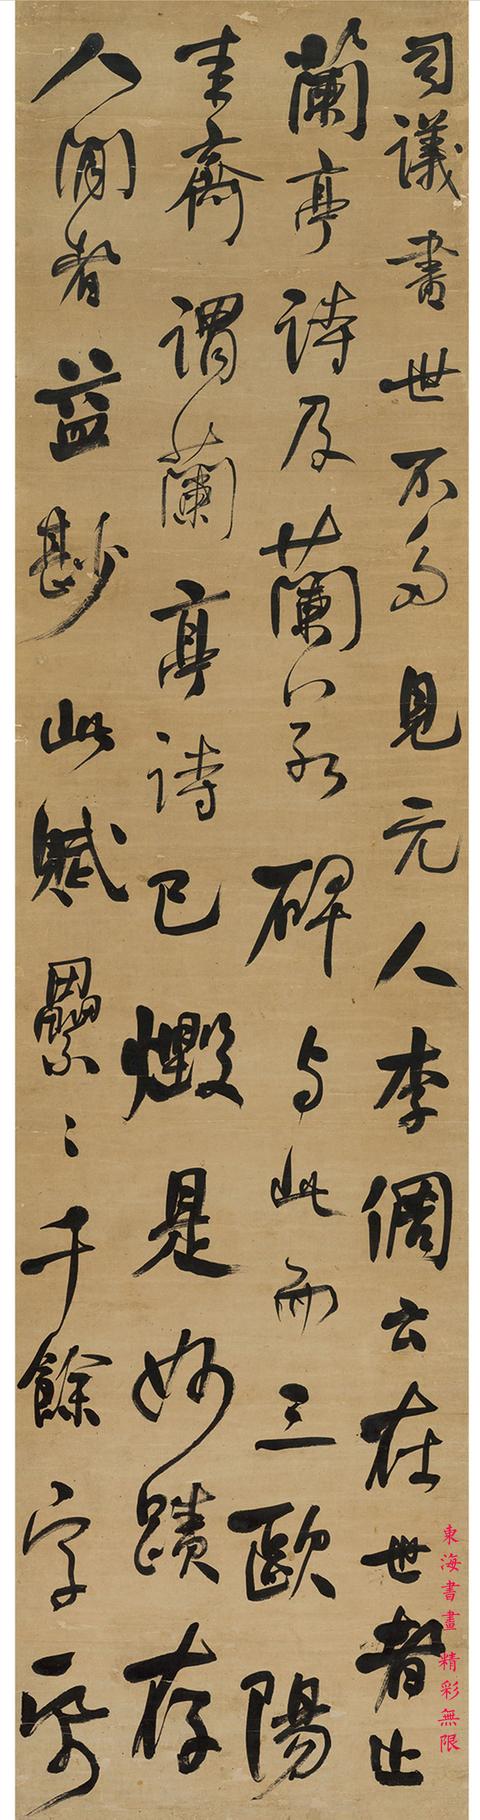 司議書世不多見元人李倜云在世者止
蘭亭詩及蘭若碑与此而三歐陽
圭齋謂蘭亭詩已燬是妙蹟存
人間者益尠此賦纍〻千餘字
東海書畫 精彩無限